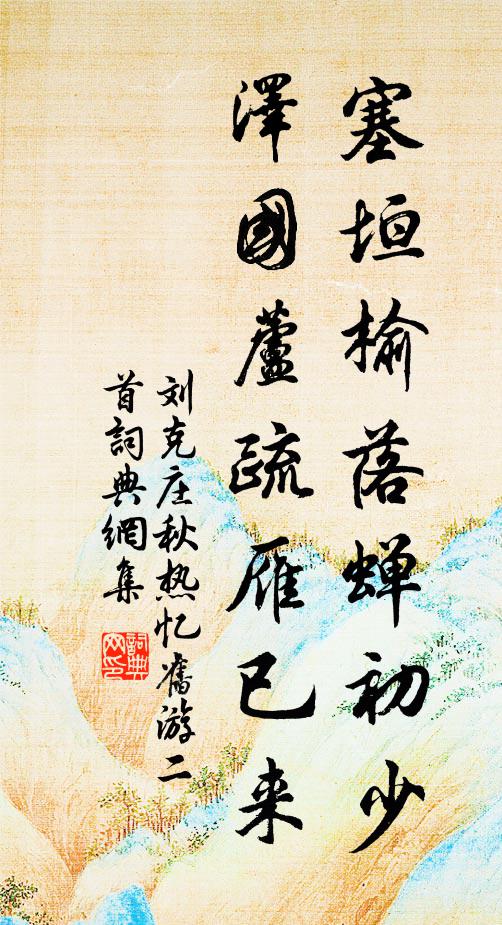 塞垣榆落蝉初少
澤國蘆疏雁已来
刘克庄秋热忆舊游二
首詞典網集
詞典
网印